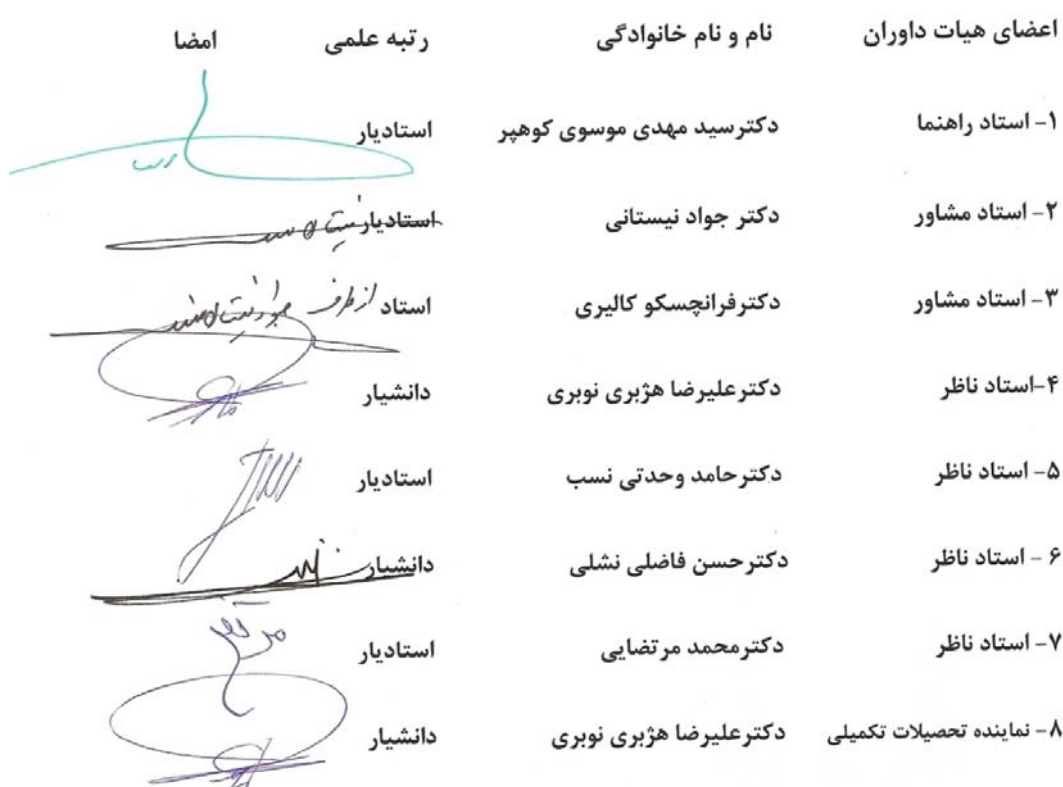 اعضای هیات داوران نام و نام خانوادگی رتبه علمی امضا
۱- استاد راهنما دکترسید مهدی موسوی کوهپر استادیار
۲- استاد مشاور دکتر جواد نیستانی استادیار
۳- استاد مشاور دکترفرانچسکو کالیری استاد از طرف
۴-استاد ناظر دکترعلیرضا هژبری نوبری دانشیار
۵- استاد ناظر دکترحامد وحدتی نسب استادیار
۶ - استاد ناظر دکترحسن فاضلی نشلی دانشیار
۷- استاد ناظر دکترمحمد مرتضایی استادیار
۸- نماینده تحصیلات تکمیلی دکترعلیرضا هژبری نوبری دانشیار